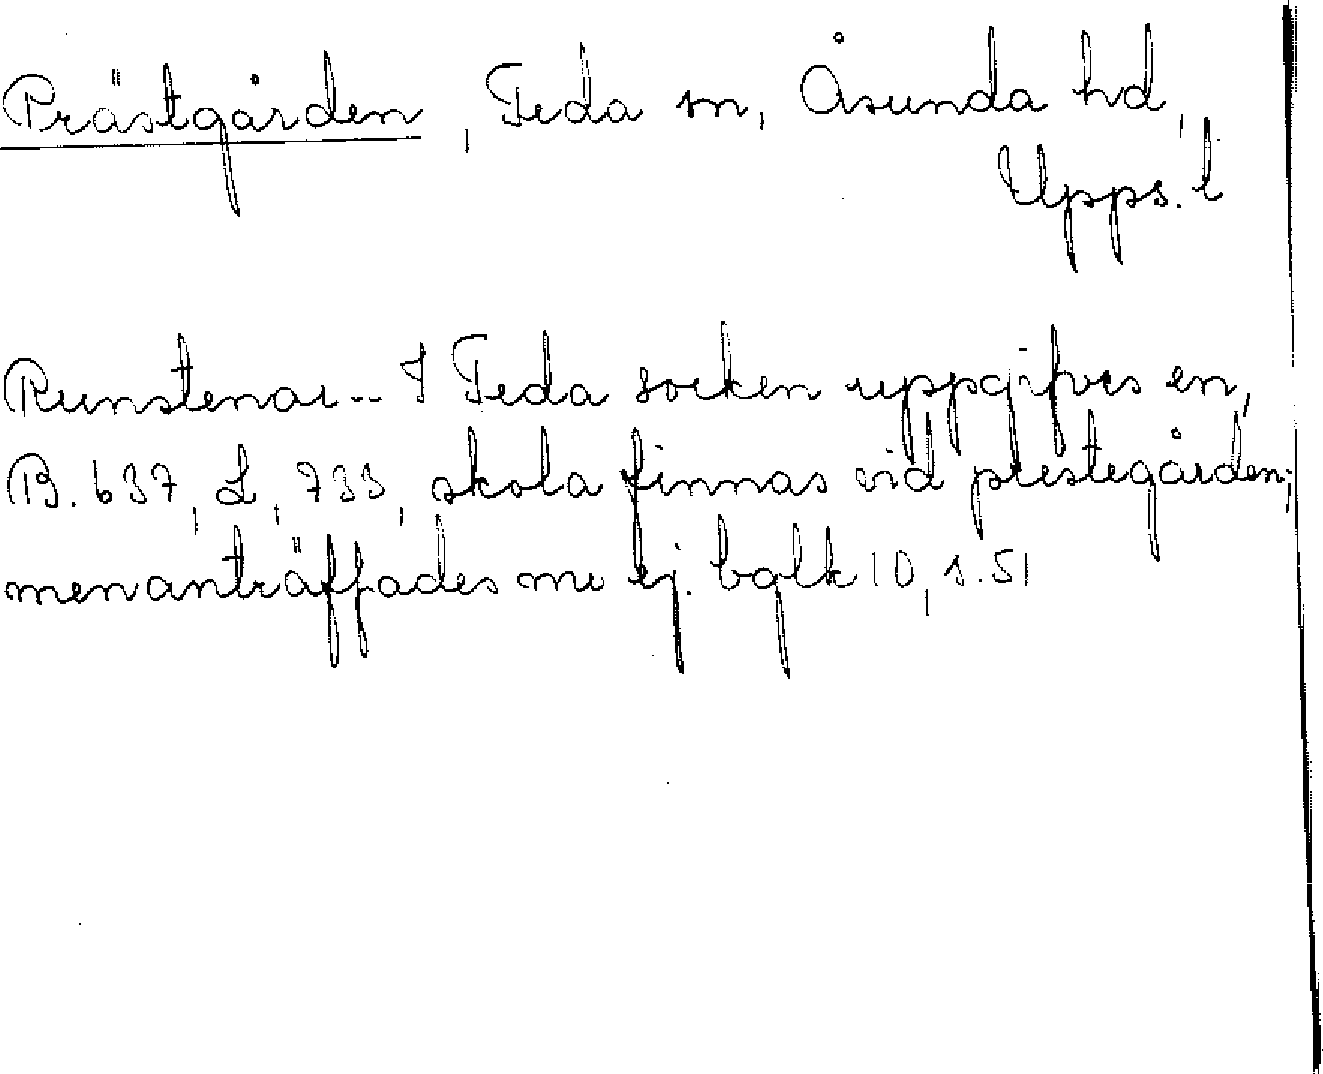 Prästgården, Teda sn, Åsunda hd,
Upps. l
Runstenar.. I Teda socken uppgifves en,
B. 637, L, 733, skola finnas vid prestegården;
men anträffades nu ej. bglk 10, s. 51